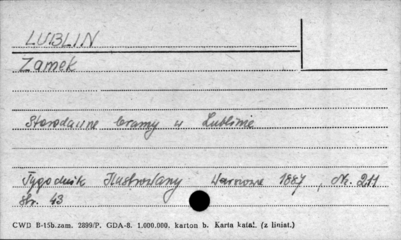 LUBLIN
Zamek
Starodawne bramy w Lublinie
Tygodnik Ilustrowany Warszawa 1887, Nr. 211
Str. 43
CWD B-15b.zam. 2899/P. GDA-8. 1.600.000. karton b. Karta katal. (z liniat.)